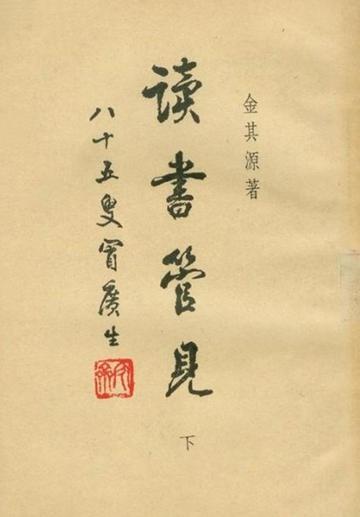 金其源著
读書管見
下
八十五叟冒廣生